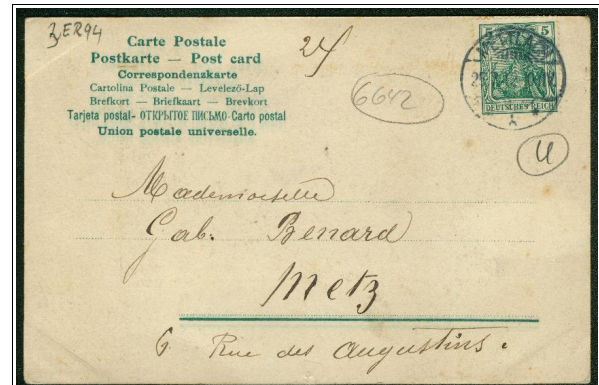 3,ER94
Carte Postale
Postkarte — Post card
Correspondenzkarte
Cartolina Postale — Levelező-Lap
Brefkort — Briefkaart — Brevkort
Tarjeta postal- ОТКРЫТОЕ ПИСЬМО-Carto postal
Union postale universelle.
24
6642
5 5
DEUTSCHES REICH
U
Mademoiselle
Gab. Benard
Metz
6 Rue des Augustins.